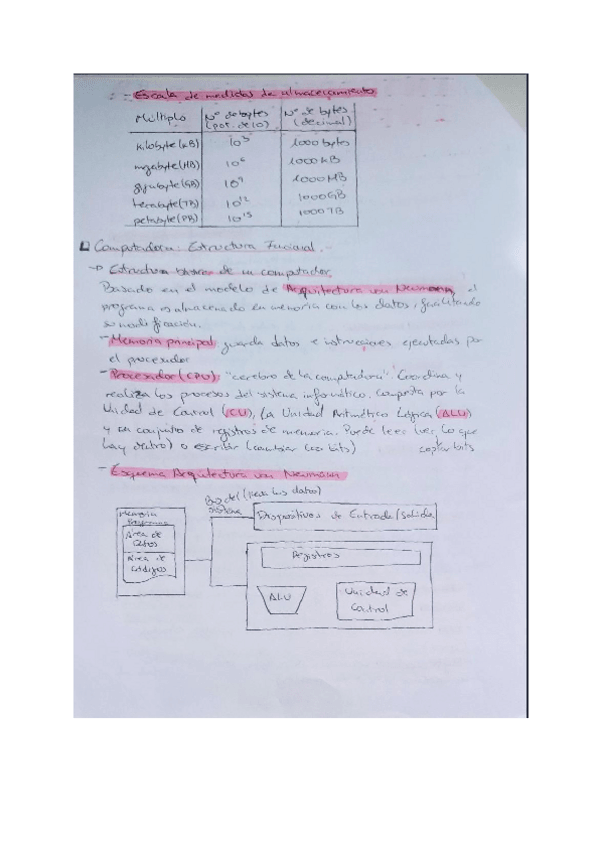 - Escala de medidas de almacenamiento
Múltiplo | Nº de bytes (pot. de 10) | Nº de bytes (decimal)
Kilobyte (KB) | 10³ | 1000 bytes
megabyte (MB) | 10⁶ | 1000 KB
gigabyte (GB) | 10⁹ | 1000 MB
terabyte (TB) | 10¹² | 1000 GB
petabyte (PB) | 10¹⁵ | 1000 TB
Computadora: Estructura Funcional.
→ Estructura básica de un computador
Basado en el modelo de Arquitectura von Neumann, el
programa es almacenado en memoria con los datos, facilitando
su modificación.
- Memoria principal: guarda datos e instrucciones ejecutadas por
el procesador
- Procesador (CPU): "cerebro de la computadora" Coordina y
realiza los procesos del sistema informático, compuesta por la
Unidad de Control (CU), la Unidad Aritmético Lógica (ALU)
y un conjunto de registros de memoria. Puede leer (ver lo que
hay dentro) o escribir (cambiar los bits)
copiar bits
- Esquema Arquitectura von Neumann
Bus del sistema (lleva los datos)
Memoria
Área de datos
Área de códigos
Dispositivos de Entrada/Salida
Registros
ALU
Unidad de Control